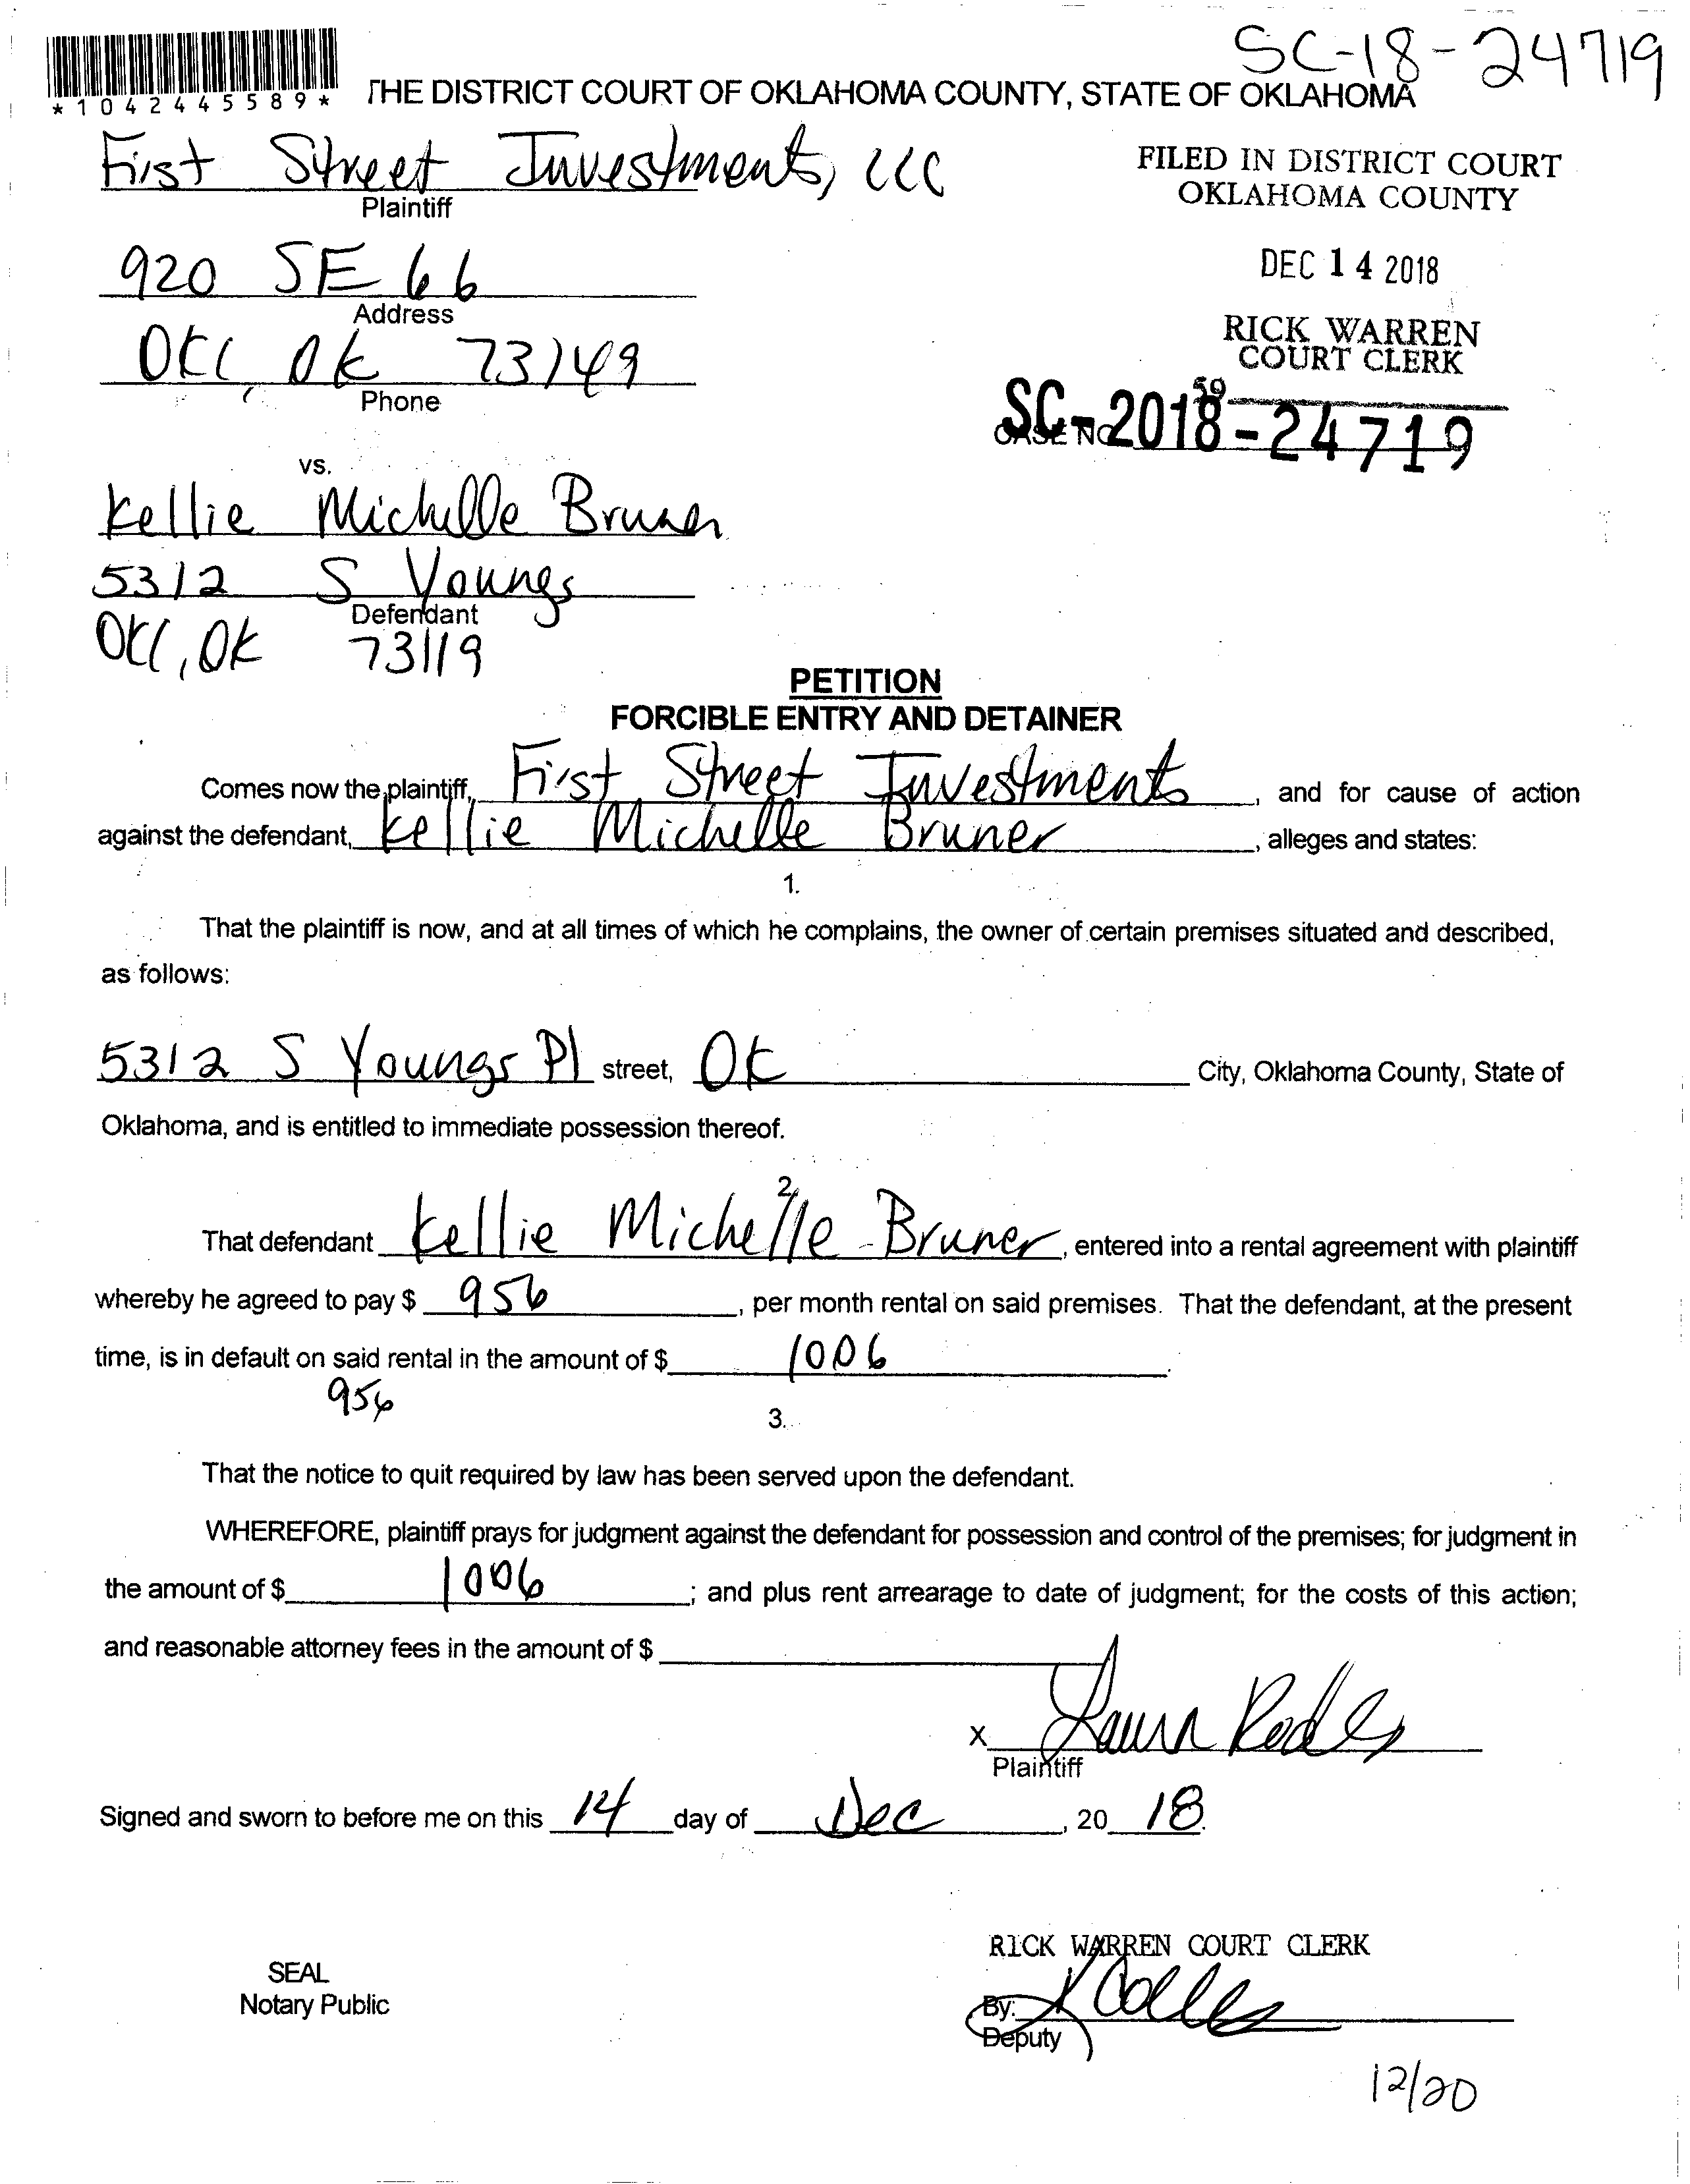 SC-18-24719
*1042445589*
THE DISTRICT COURT OF OKLAHOMA COUNTY, STATE OF OKLAHOMA
First Street Investments, LLC
Plaintiff
FILED IN DISTRICT COURT
OKLAHOMA COUNTY
920 SE 66
Address
DEC 14 2018
OKC, OK 73149
Phone
RICK WARREN
COURT CLERK
59
CASE NO
SC-2018-24719
vs.
Kellie Michelle Bruner
5312 S Youngs
Defendant
OKC, OK 73119
PETITION
FORCIBLE ENTRY AND DETAINER
Comes now the plaintiff, First Street Investments, and for cause of action
against the defendant, Kellie Michelle Bruner, alleges and states:
1.
That the plaintiff is now, and at all times of which he complains, the owner of certain premises situated and described,
as follows:
5312 S Youngs Pl street, OK City, Oklahoma County, State of
Oklahoma, and is entitled to immediate possession thereof.
2.
That defendant Kellie Michelle Bruner, entered into a rental agreement with plaintiff
whereby he agreed to pay $ 956, per month rental on said premises. That the defendant, at the present
time, is in default on said rental in the amount of $ 1006.
956
3.
That the notice to quit required by law has been served upon the defendant.
WHEREFORE, plaintiff prays for judgment against the defendant for possession and control of the premises; for judgment in
the amount of $ 1006; and plus rent arrearage to date of judgment; for the costs of this action;
and reasonable attorney fees in the amount of $
X Laura
Plaintiff
Signed and sworn to before me on this 14 day of Dec, 20 18.
RICK WARREN COURT CLERK
SEAL
Notary Public
By:
Deputy
12/20